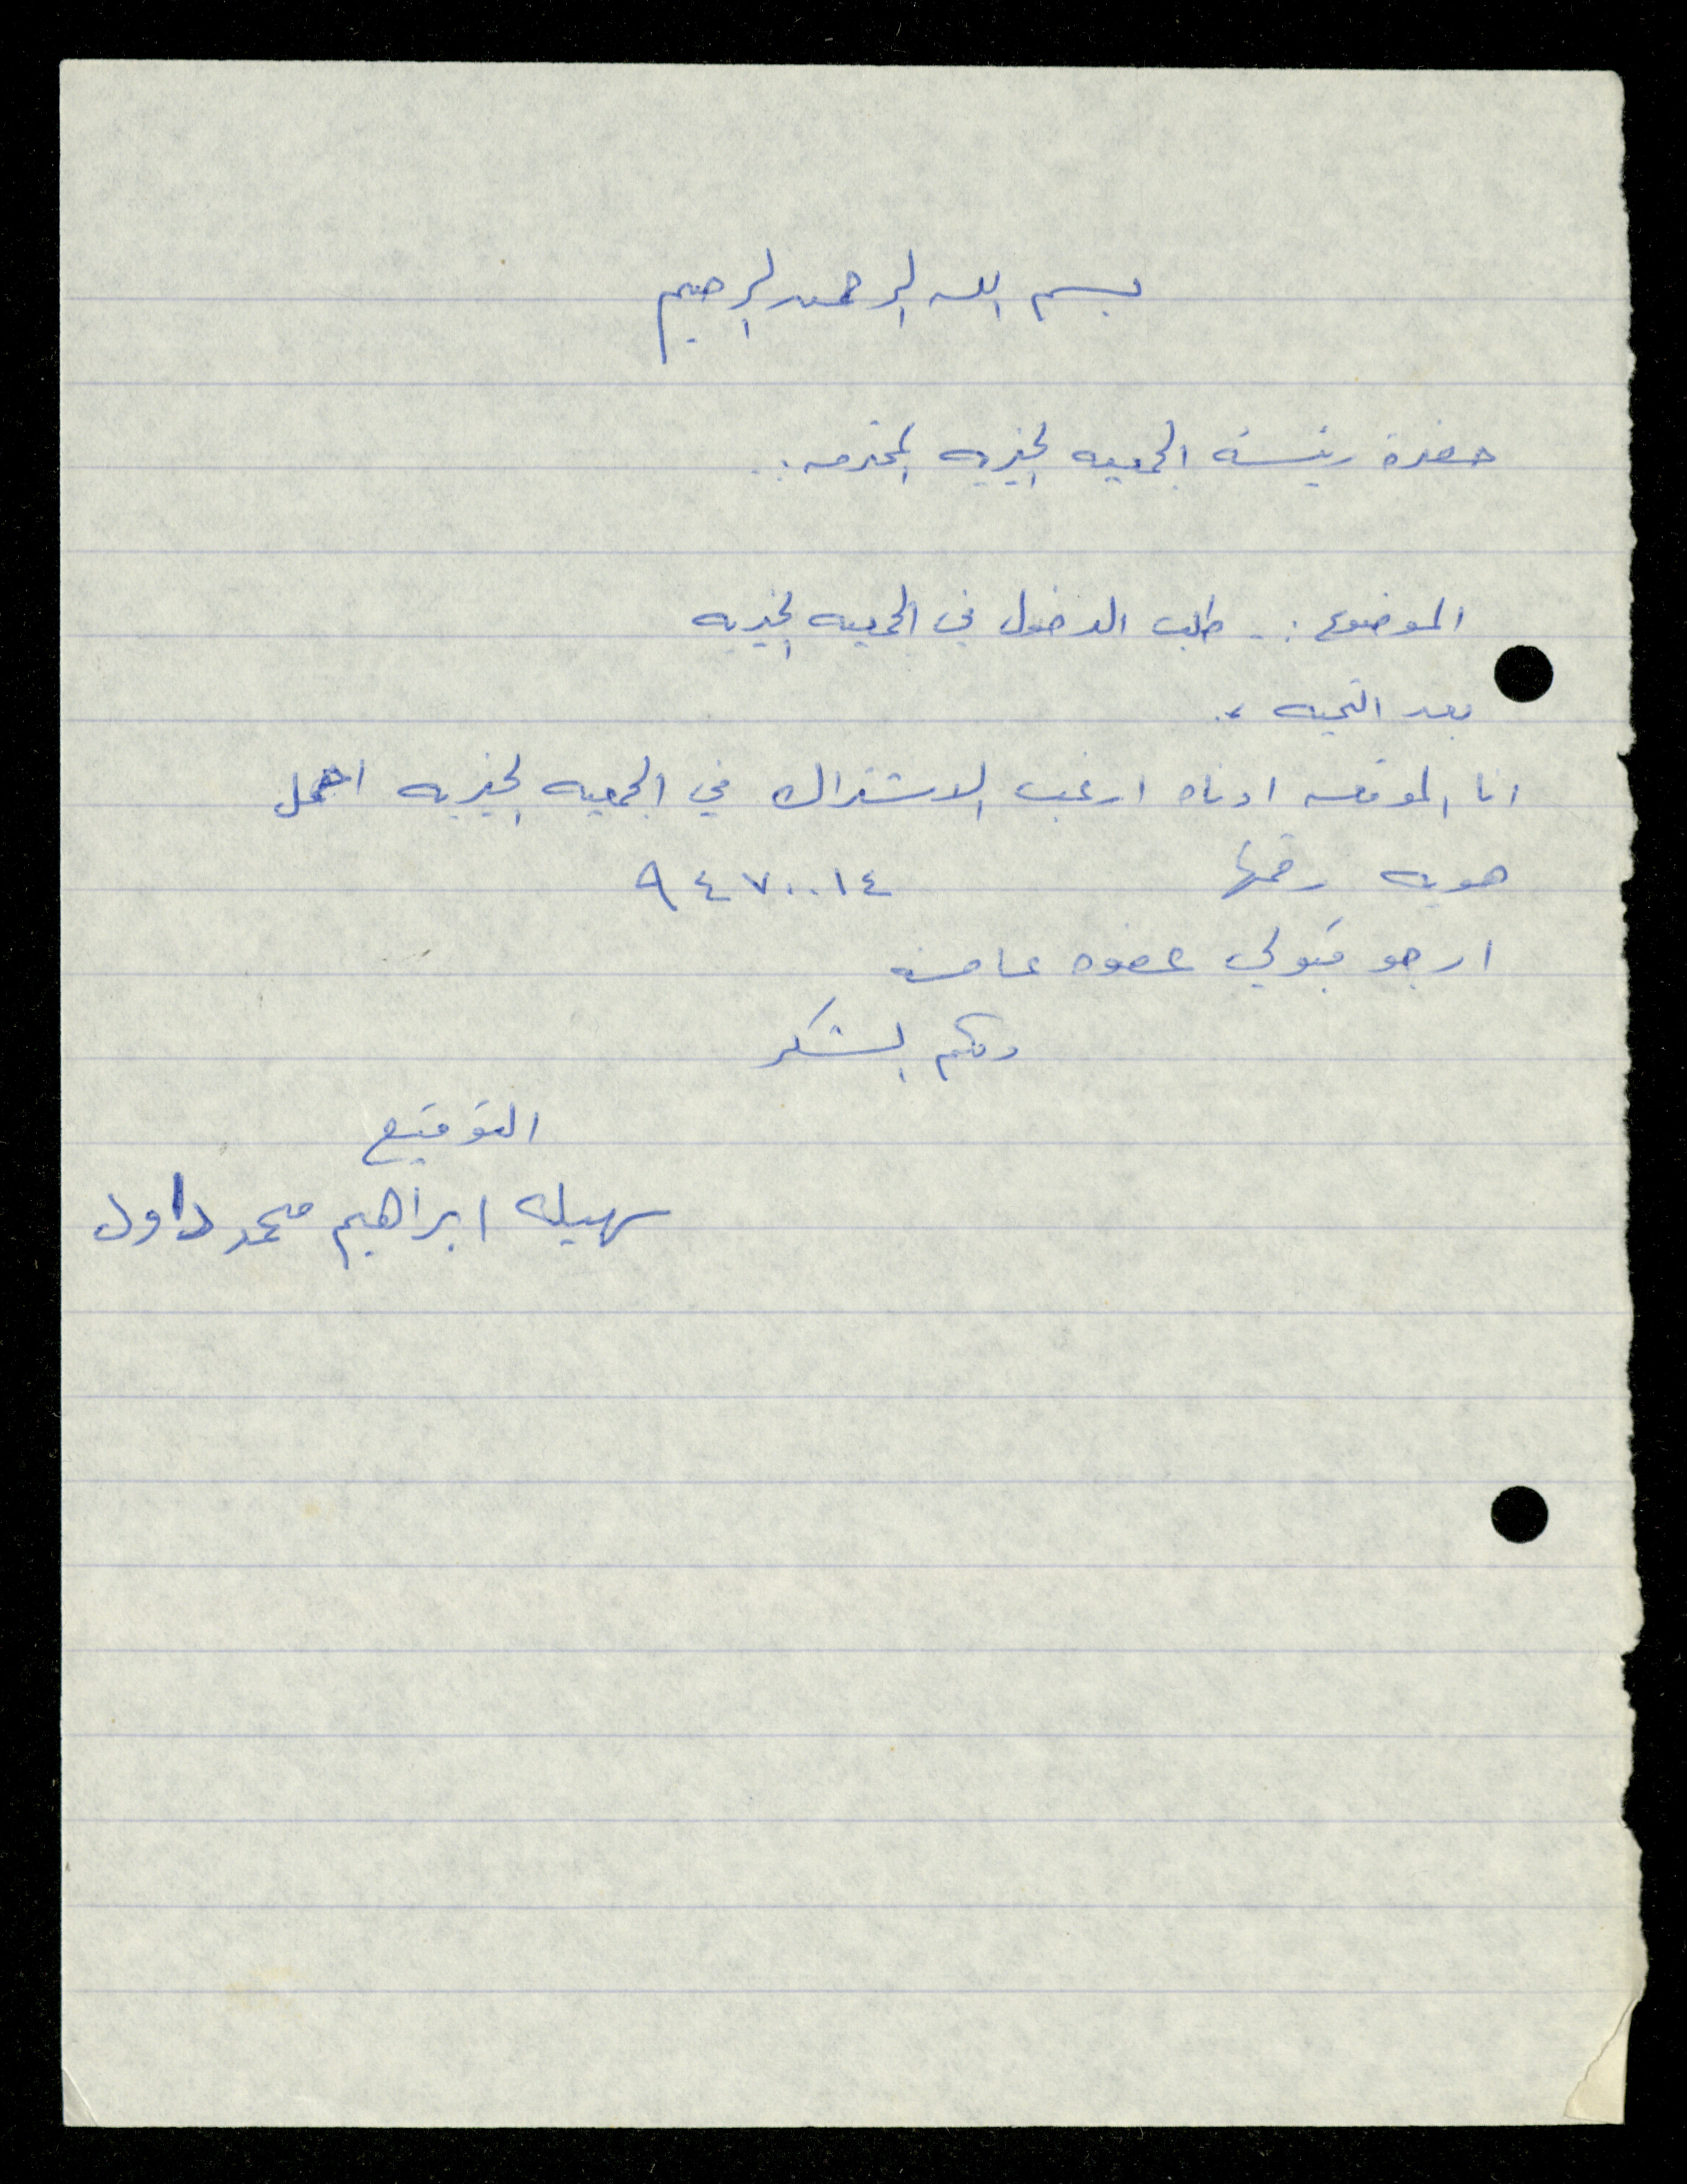 بسم الله الرحمن الرحيم
حضرة رئيسة الجمعيه الخيريه المحترمه :.
الموضوع :. طلب الدخول في الجمعيه الخيريه
بعد التحيه ،.
انا الموقعه ادناه ارغب الاشتراك في الجمعيه الخيريه احمل
هويه رقمها ٩٤٧٠٠١٤
ارجو قبولي عضوه عامله
ولكم الشكر
التوقيع
سهيله ابراهيم محمد داود